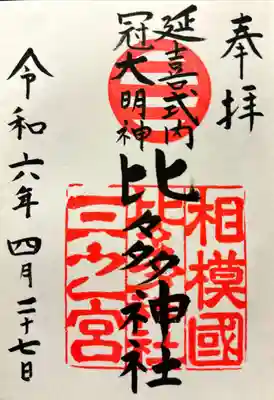 奉拝
延喜式内
冠大明神
比々多神社
相模國
三之宮
令和六年四月二十七日